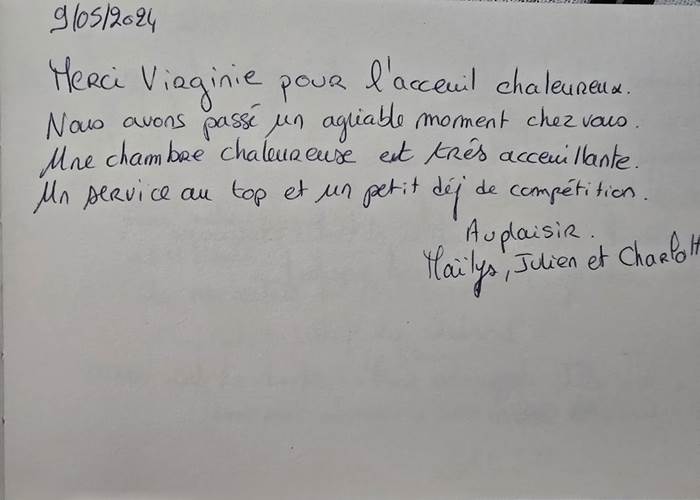 9/05/2024
Merci Virginie pour l'acceuil chaleureux.
Nous avons passé un agréable moment chez vous.
Une chambre chaleureuse et très acceuillante.
Un service au top et un petit déj de compétition.
Au plaisir.
Maïlys, Julien et Charlott